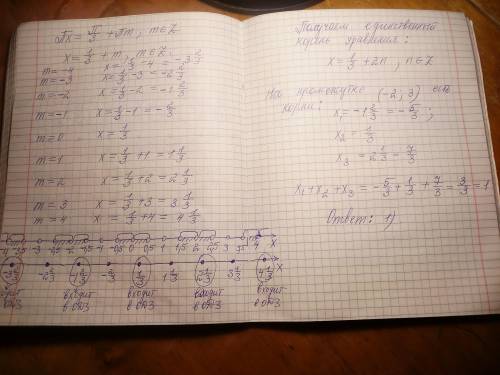 πx = π/3 + πm, m∈Z
x = 1/3 + m, m∈Z.
m = -4 x = 1/3 - 4 = -3 2/3
m = -3 x = 1/3 - 3 = -2 2/3
m = -2 x = 1/3 - 2 = -1 2/3
m = -1 x = 1/3 - 1 = - 2/3
m = 0 x = 1/3
m = 1 x = 1/3 + 1 = 1 1/3
m = 2 x = 1/3 + 2 = 2 1/3
m = 3 x = 1/3 + 3 = 3 1/3
m = 4 x = 1/3 + 4 = 4 1/3
x
-2 2/3 -2/3 1/3 1 1/3 3 1/3 4 1/3 x
входит входит входит входит входит
в ОДЗ в ОДЗ в ОДЗ в ОДЗ в ОДЗ
Получаем единственный
корень уравнения:
x = 1/3 + 2n, n∈Z
На промежутке (-2; 3) есть
корни:
x₁ = -1 2/3 = - 5/3;
x₂ = 1/3
x₃ = 2 1/3 = 7/3
x₁ + x₂ + x₃ = - 5/3 + 1/3 + 7/3 = 3/3 = 1
Ответ: 1)